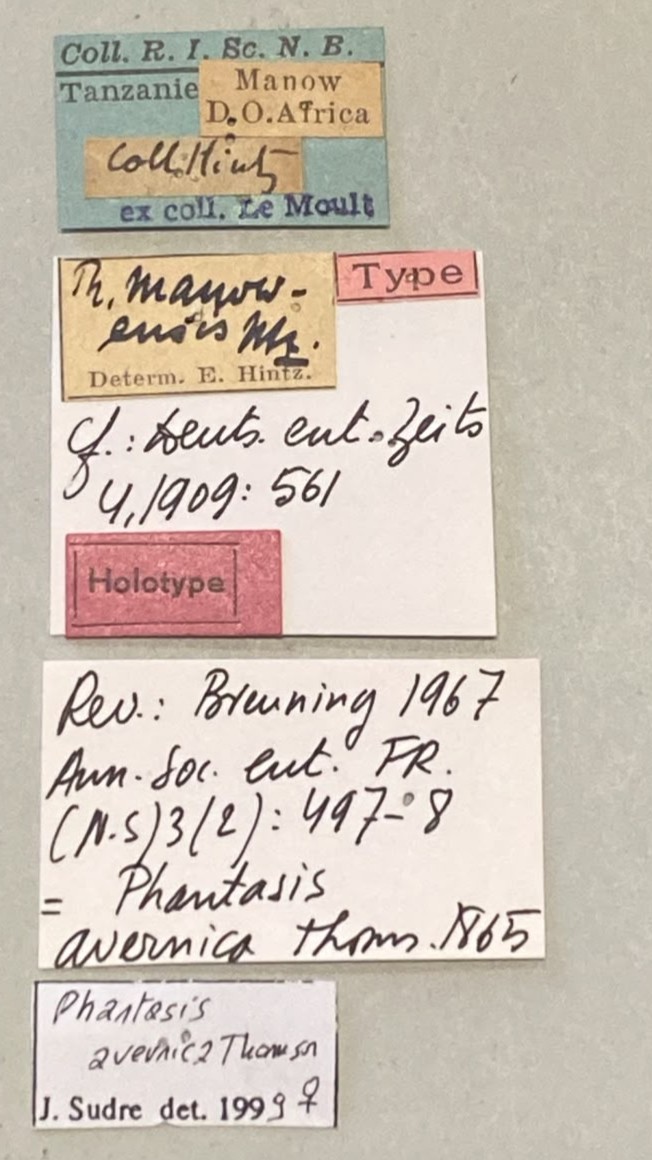 Coll. R. I. Sc. N. B.
Tanzanie
Manow
D.O.Africa
Coll. Hintz
ex coll. Le Moult
Th. manow-
ensis Htz.
Determ. E. Hintz.
Type
cf.: Deuts. ent. Zeits
4, 1909: 561
Holotype
Rev.: Breuning 1967
Ann. Soc. ent. FR.
(N.S)3(2): 497-8
= Phantasis
avernica Thoms. 1865
Phantasis
avernica Thomson
J. Sudre det. 1999 ♀